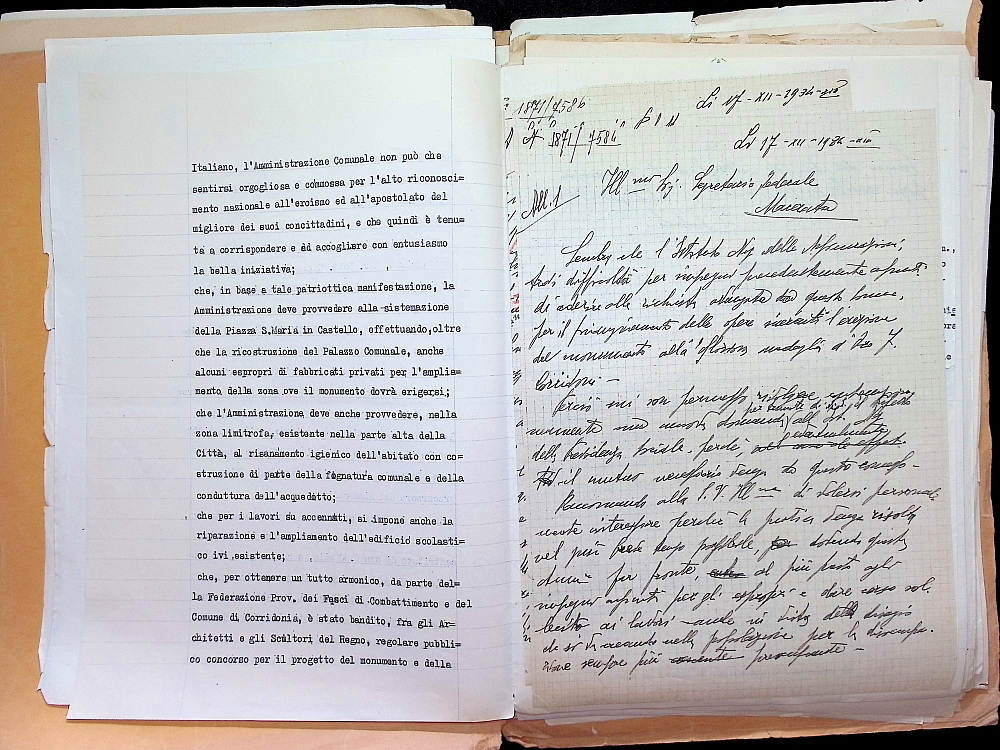 Italiano, l'Amministrazione Comunale non può che
sentirsi orgogliosa e commossa per l'alto riconosci=
mento nazionale all'eroismo ed all'apostolato del
migliore dei suoi concittadini, e che quindi è tenu=
ta a corrispondere e ad accogliere con entusiasmo
la bella iniziativa;
che, in base a tale patriottica manifestazione, la
Amministrazione deve provvedere alla sistemazione
della Piazza S.Maria in Castello, effettuando,oltre
che la ricostruzione del Palazzo Comunale, anche
alcuni espropri di fabbricati privati per l'amplia=
mento della zona ove il monumento dovrà erigersi;
che l'Amministrazione deve anche provvedere, nella
zona limitrofa, esistente nella parte alta della
Città, al risanamento igienico dell'abitato con co=
struzione di parte della fognatura comunale e della
conduttura dell'acquedotto;
che per i lavori su accennati, si impone anche la
riparazione e l'ampliamento dell'edificio scolasti=
co ivi esistente;
che, per ottenere un tutto armonico, da parte del=
la Federazione Prov. dei Fasci di Combattimento e del
Comune di Corridonia, è stato bandito, fra gli Ar=
chitetti e gli Scultori del Regno, regolare pubbli=
co concorso per il progetto del monumento e della
1871/7586
Li 17-XII-1934-XIII
1871/7584
Li 17-XII-1934-XIII
All. 1
Ill mo Sig. Segretario Federale
Macerata
Sembra che l'Istituto Naz. delle Assicurazioni,
trovi difficoltà per impegni precedentemente assunti
di aderire alla richiesta avanzata da questo Comune,
per il finanziamento delle opere inerenti l'erezione
del monumento alla gloriosa medaglia d'oro F.
Corridoni -
Perciò mi son permesso
una nuova domanda
della Presidenza perchè
il mutuo necessario venga da questo concesso -
Raccomando alla S.V. Ill ma di volersi personal=
mente interessare perchè la pratica venga risolta
nel più breve tempo possibile, dovendo questa
Amm. far fronte, al più presto agli
impegni assunti per gli espropri e dare corso sol
lecito ai lavori - anche in vista del disagio
che si va creando nella popolazione per la disoccupa=
zione sempre più preoccupante -